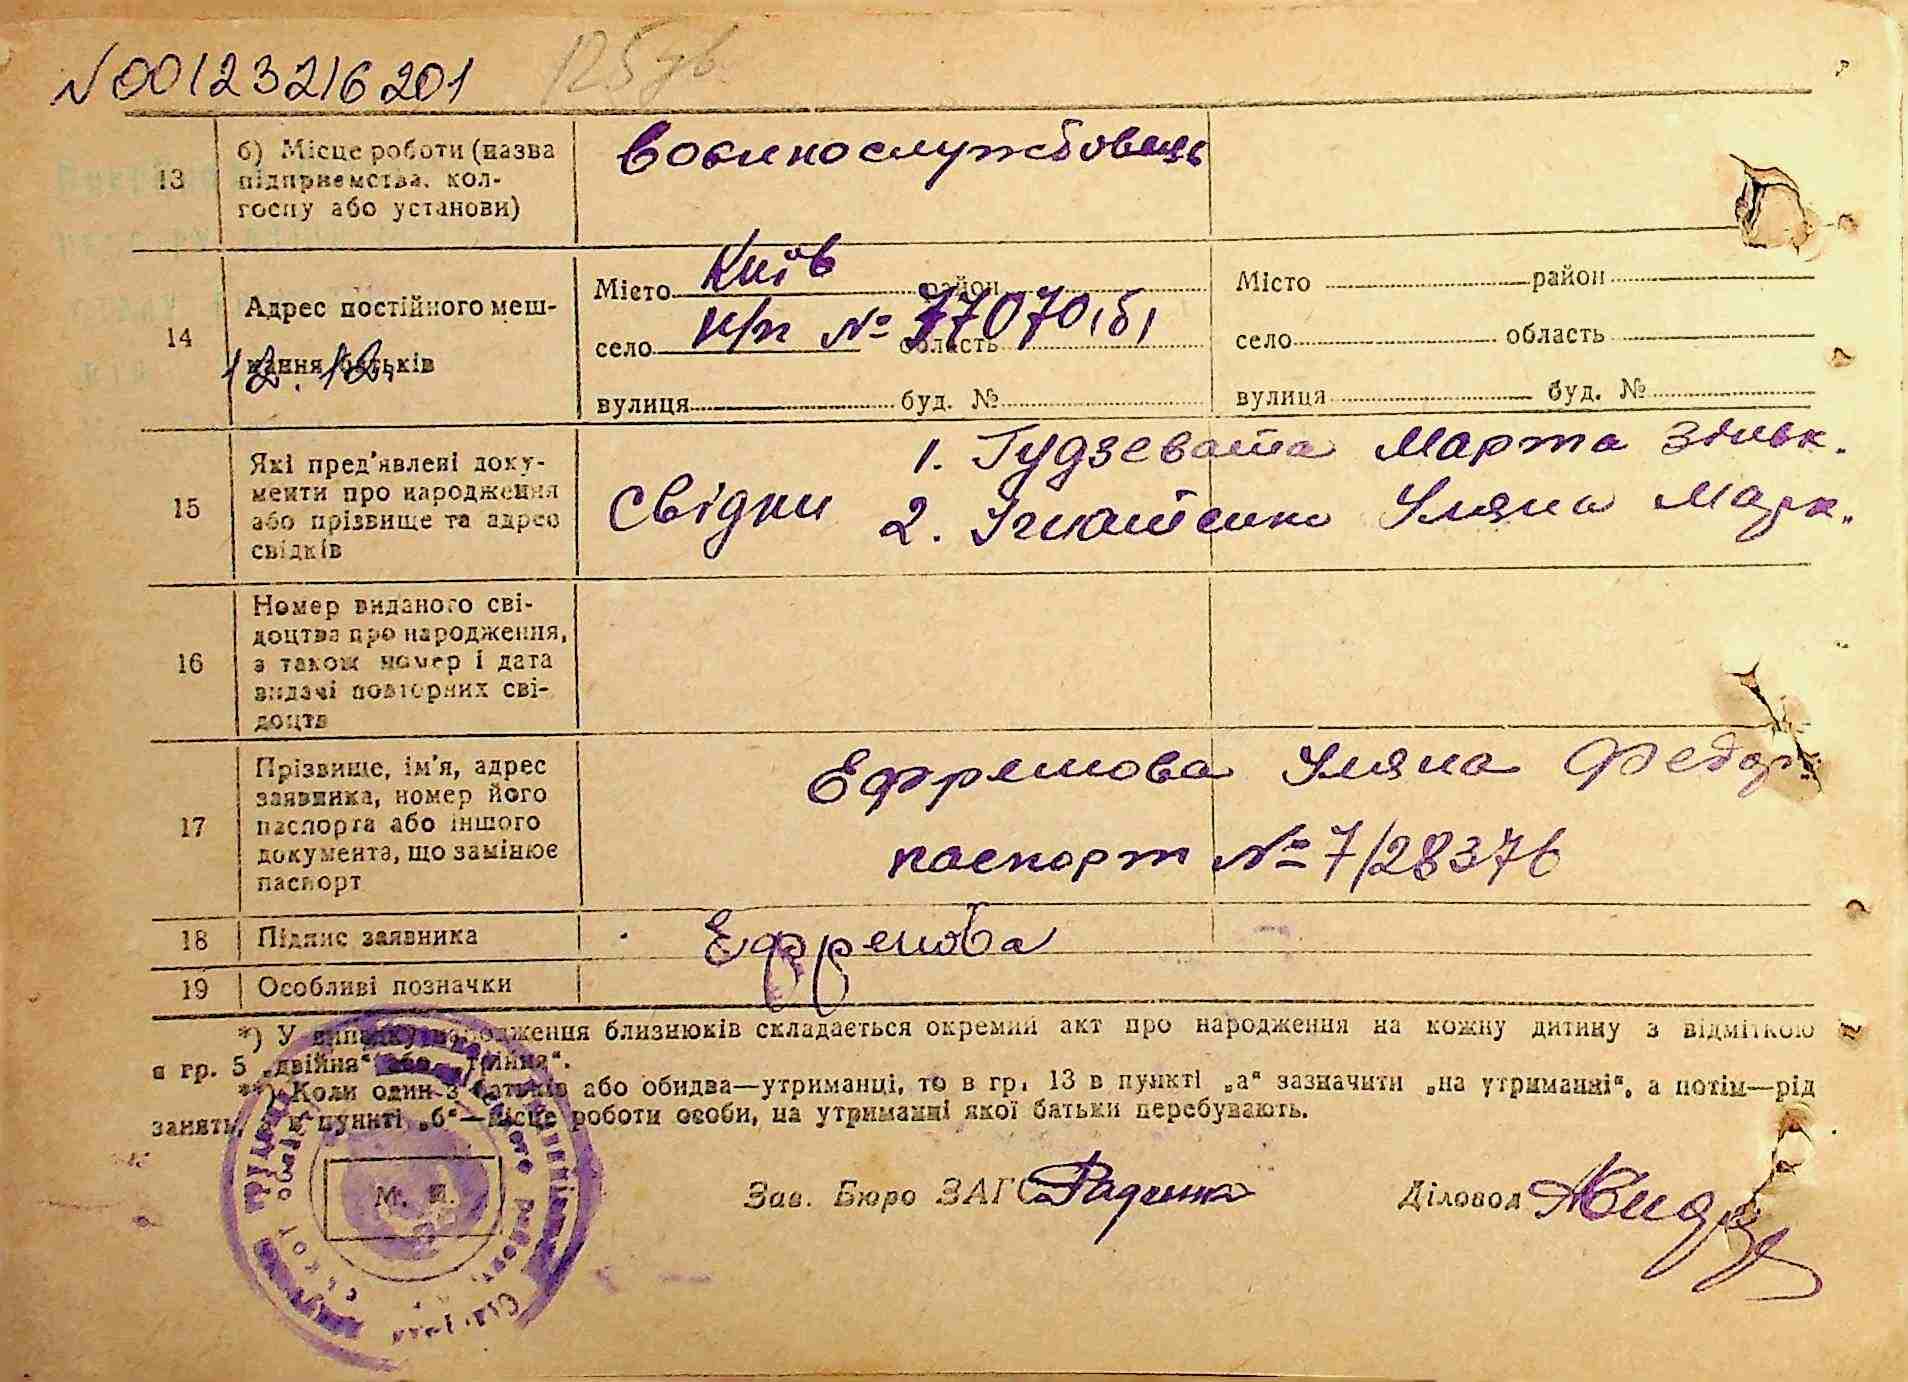 № 00123216201
13 б) Місце роботи (назва
підприємства, кол-
госпу або установи)
воєннослужбовець
14 Адрес постійного меш-
кання батьків
12.12.
Місто Київ район Місто район
село п/п № 77070 "б" область село область
вулиця буд. № вулиця буд. №
15 Які пред'явлені доку-
менти про народження
або прізвище та адрес
свідків
Свідки 1. Гудзевата Марта
2. Ігнатенко Уляна Марк.
16 Номер виданого сві-
доцтва про народження,
а також номер і дата
видачі повторних сві-
доцтв
17 Прізвище, ім'я, адрес
заявника, номер його
паспорта або іншого
документа, що замінює
паспорт
Ефремова Уляна Федор.
паспорт № 7/28376
18 Підпис заявника Ефремова
19 Особливі позначки
*) У випадку народження близнюків складається окремий акт про народження на кожну дитину з відміткою
в гр. 5 „двійня“ або „трійня“.
**) Коли один з батьків або обидва—утриманці, то в гр. 13 в пункті „а“ зазначити „на утриманні“, а потім—рід
занять, а в пункті „б“—місце роботи особи, на утриманні якої батьки перебувають.
М. П.
Зав. Бюро ЗАГС Діловод